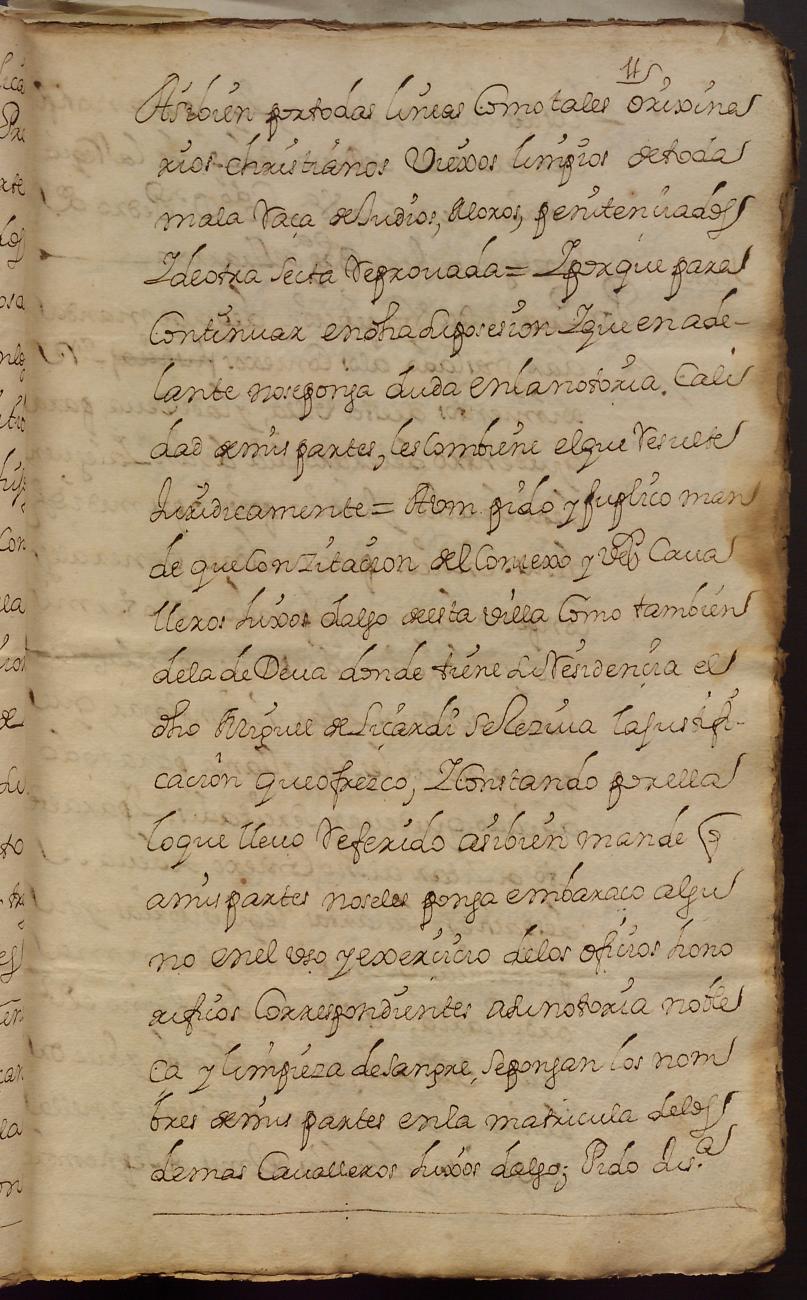 11
Asibien por todas lineas Como tales orixina
rios christianos Viexos limpios de toda
mala Raça de Judios, Moros, penitenciados
Y de otra secta Reprouada = Y porque para
Continuar en dha su posesion Y que en ade-
lante no se ponga duda en la notoria Cali
dad de mis partes, les Combiene el que Resulte
Juridicamente = A Vm pido y suplico man
de que Con Zitacion del Conzexo y Caua
lleros hixos dalgo de esta villa Como tambien
de la de Deua donde tiene su Residencia el
dho Miguel de Liçardi se Reziua la justifi-
cacion que ofrezco, Y Constando por ella
lo que lleuo Referido asibien mande q
a mis partes no se les ponga embaraço algu
no en el vso y exercicio de los oficios hono
rificos Correspondientes a su notoria noble
ça y limpieza de sangre, se pongan los nom
bres de mis partes en la matricula de los
demas Caualleros hixos dalgo; Pido Jus.a